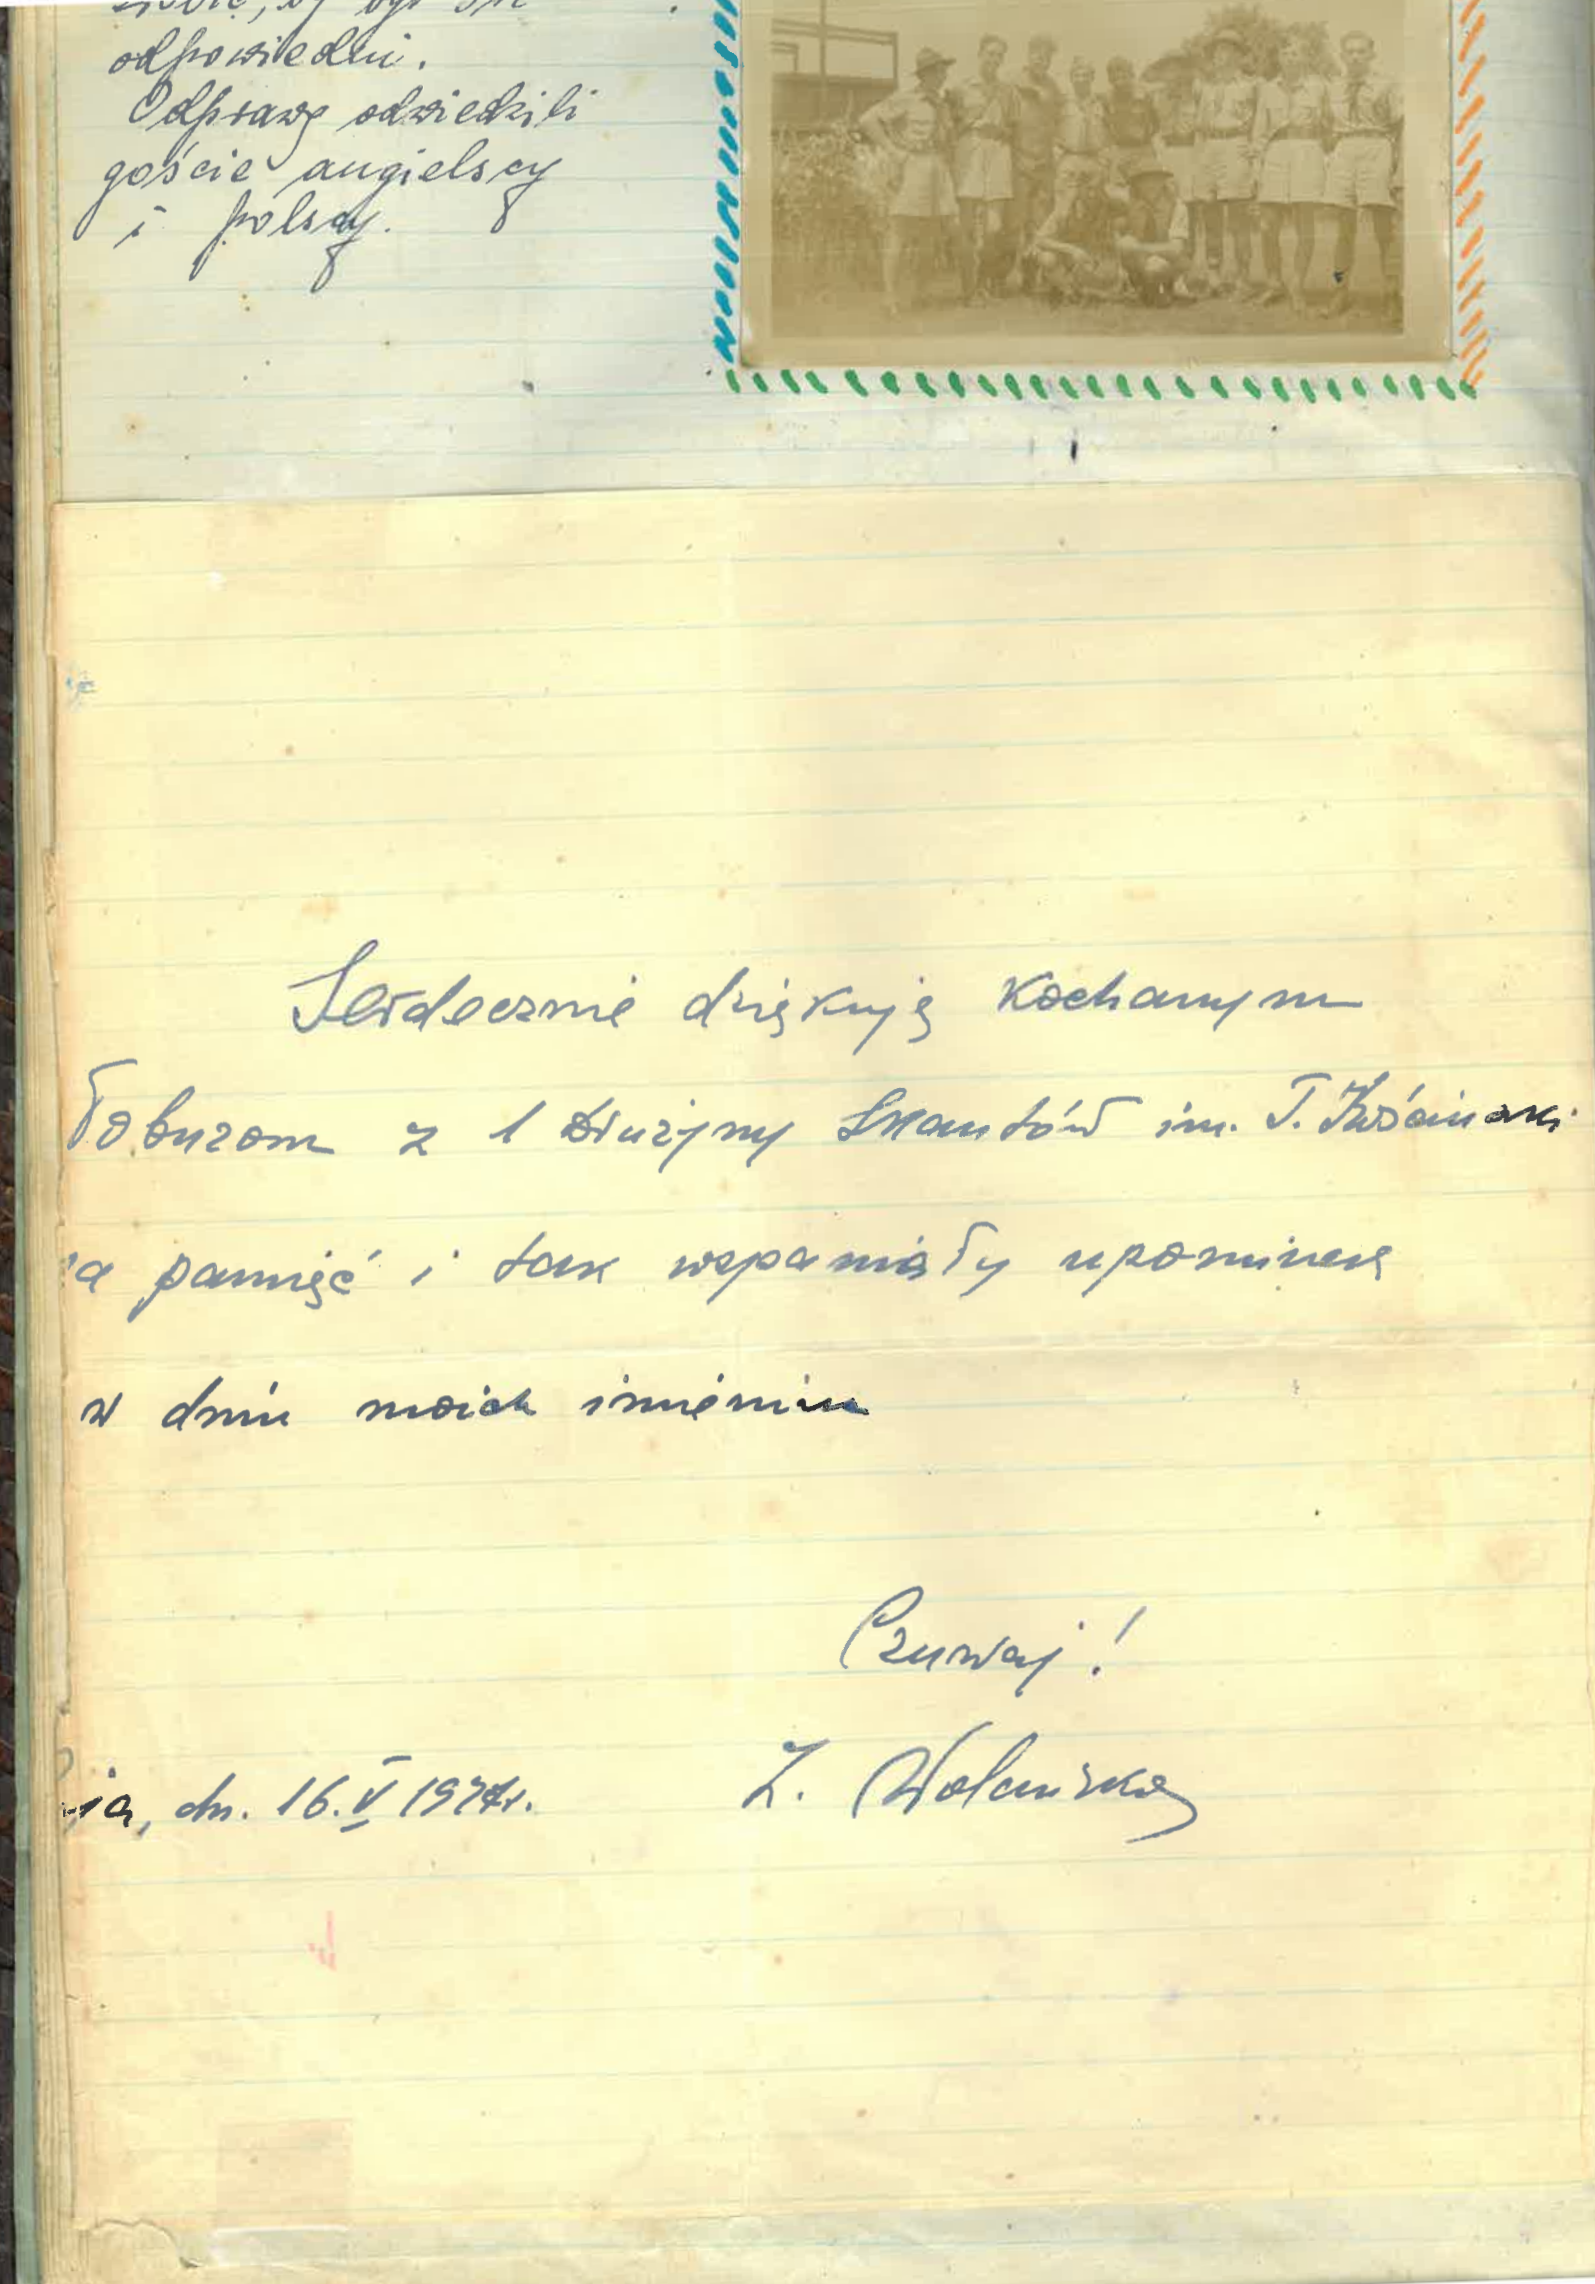 odpowiedni.
Odprawę odwiedzili
goście angielscy
i polscy.
Serdecznie dziękuję Kochanym
Łobuzom z 1 Drużyny Skautów im. T.
pamięć i tak wspaniały upominek
w dniu moich imienin
Czuwaj!
dn. 16.V 1947r.
Z. Wolańska